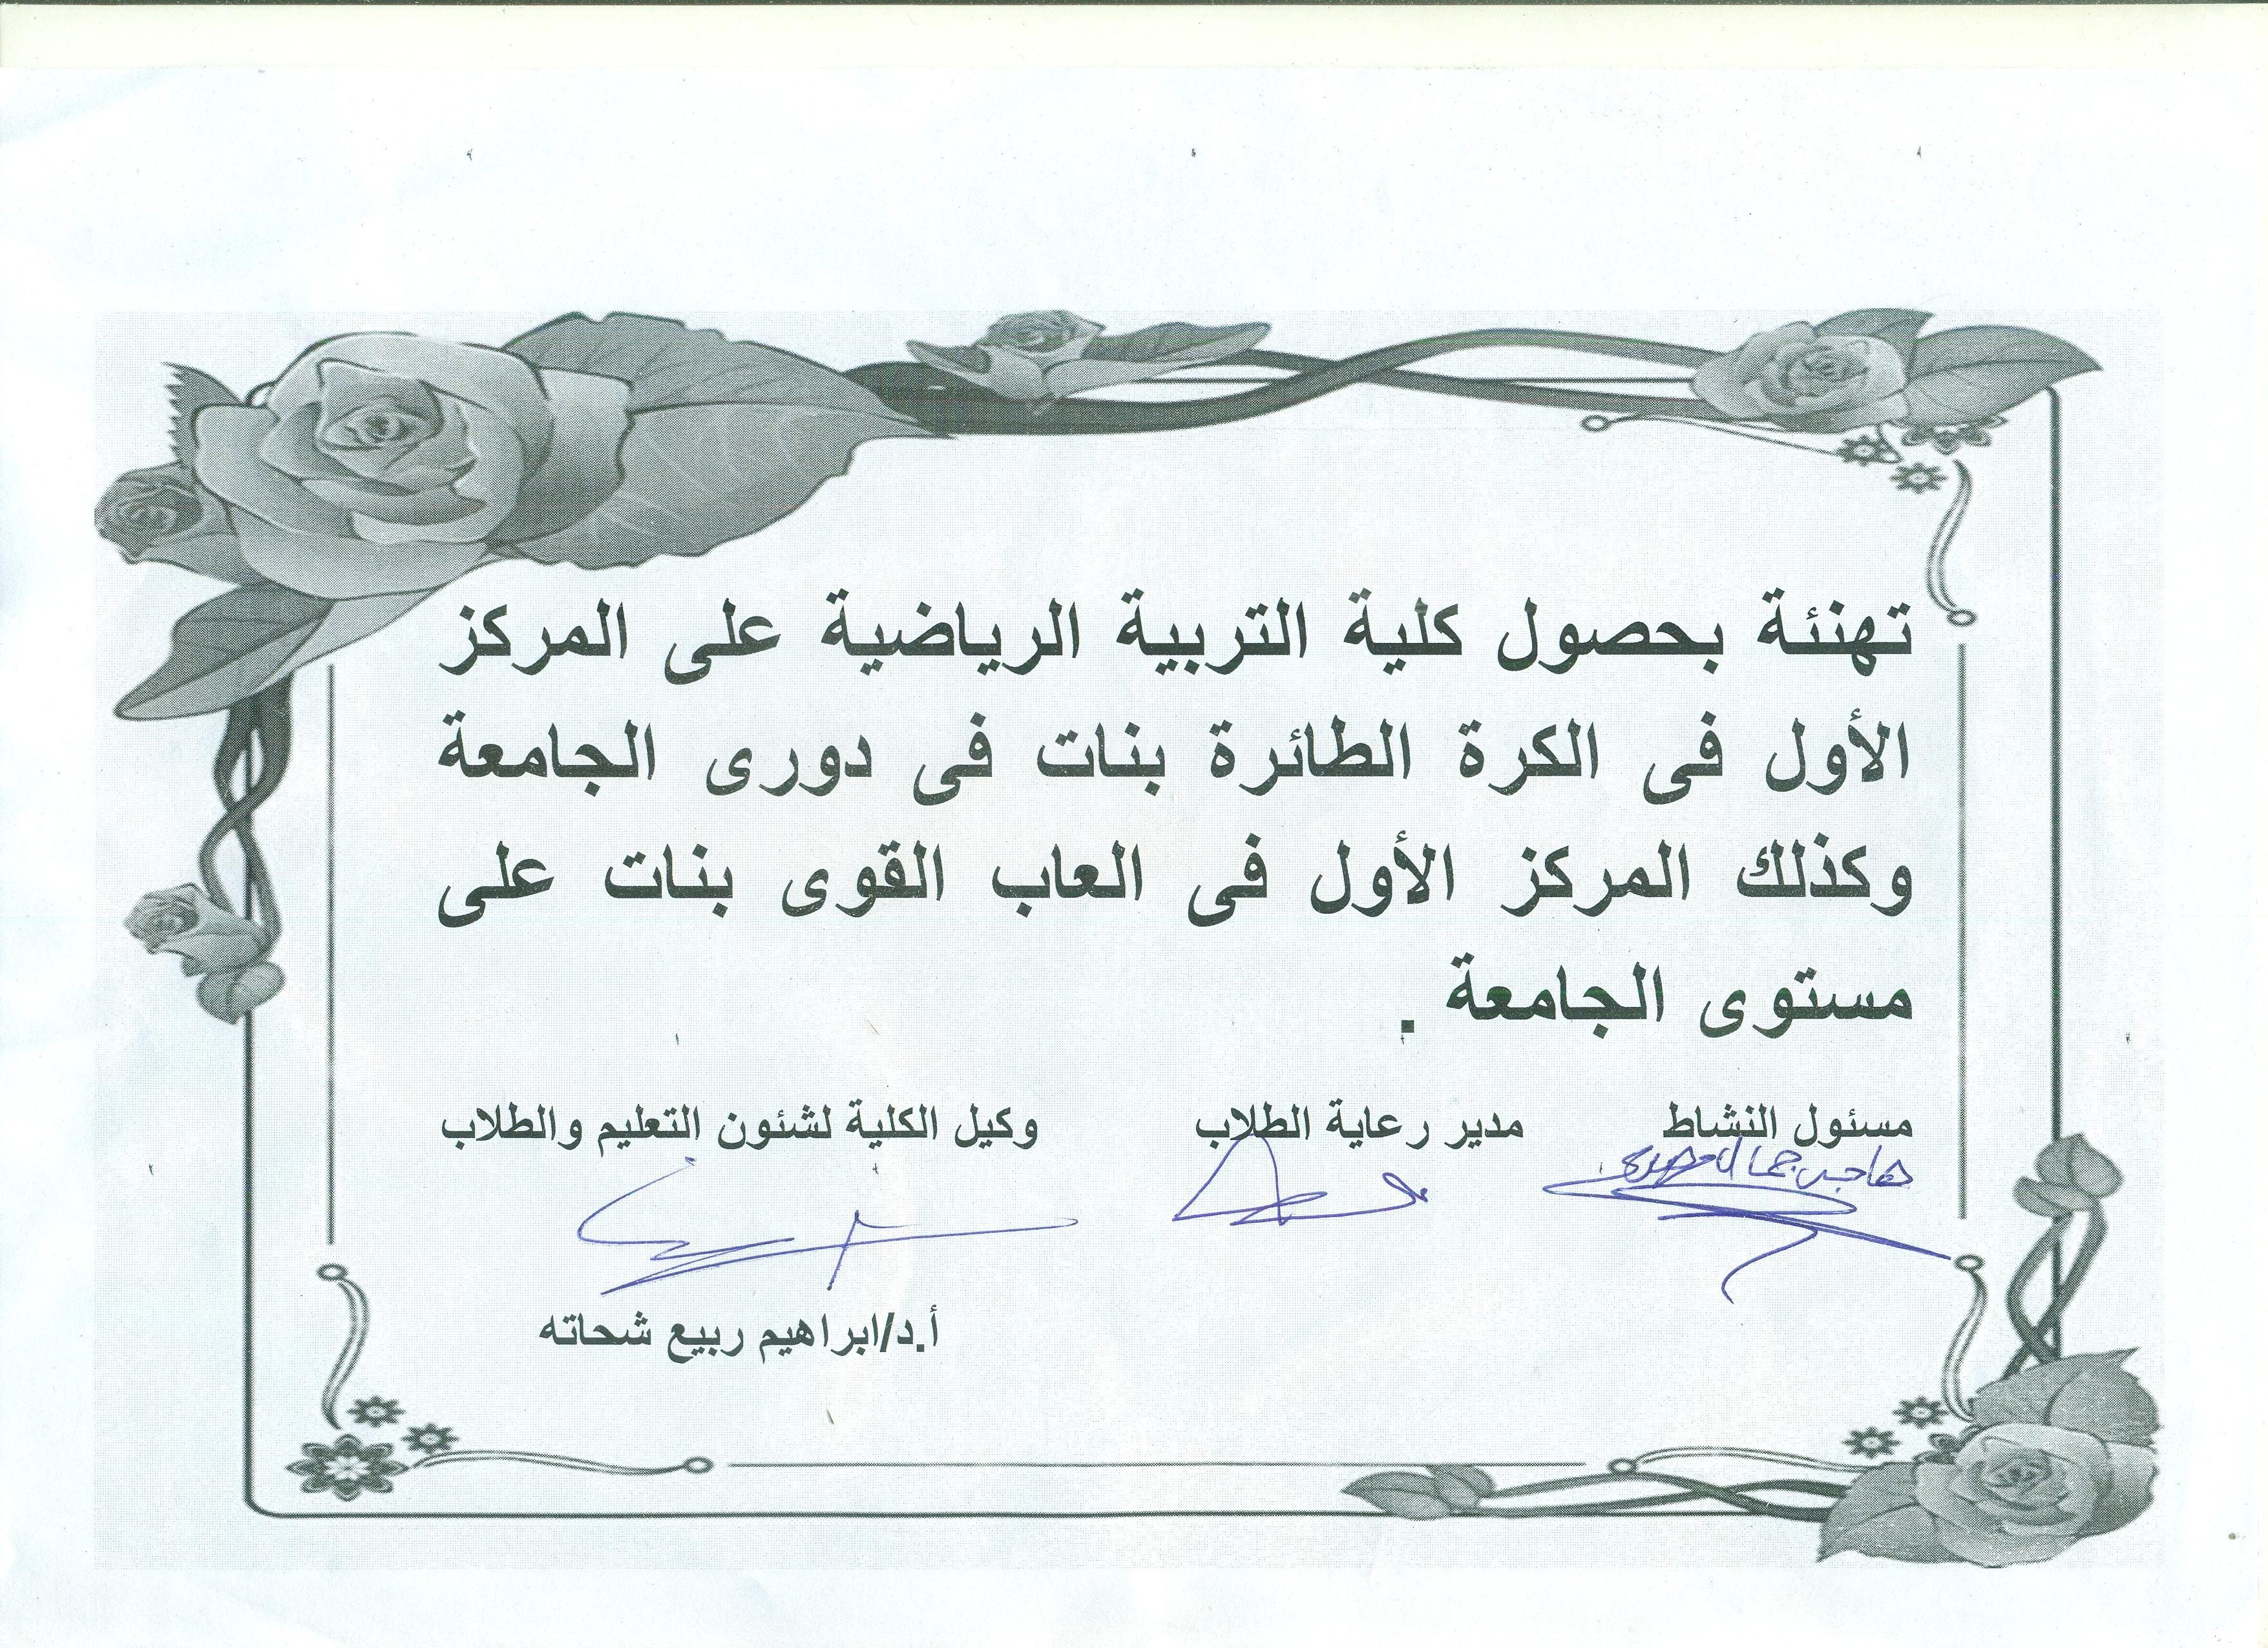 تهنئة بحصول كلية التربية الرياضية على المركز
الأول فى الكرة الطائرة بنات فى دورى الجامعة
وكذلك المركز الأول فى العاب القوى بنات على
مستوى الجامعة .
مسئول النشاط مدير رعاية الطلاب وكيل الكلية لشئون التعليم والطلاب
أ.د/ابراهيم ربيع شحاته